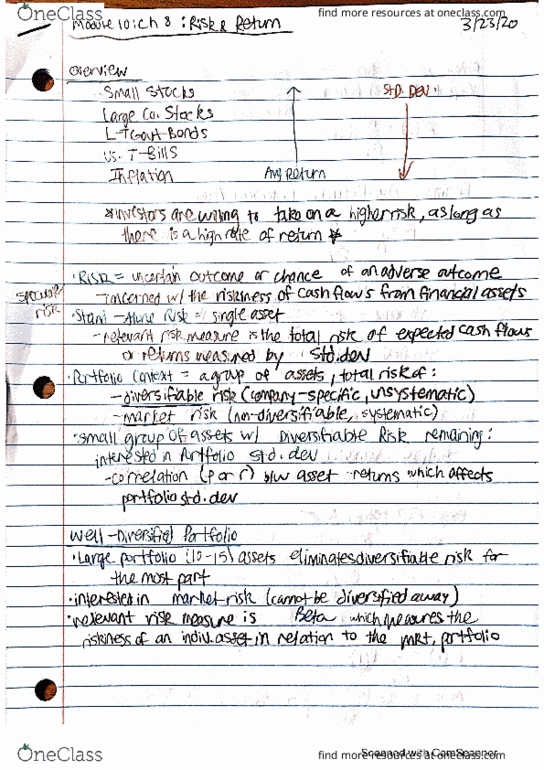 OneClass
find more resources at oneclass.com
Module 10: Ch 8 : Risk & Return
3/23/20
Overview
Small Stocks
Std. Dev.
Large Co. Stocks
L-T Govt Bonds
U.S. T-Bills
Inflation
Avg Return
*investors are willing to take on a higher risk, as long as
there is a high rate of return *
• Risk = uncertain outcome or chance of an adverse outcome
→ concerned w/ the riskiness of cash flows from financial assets
risk
• Stand-Alone Risk = single asset
- relevant risk measure is the total risk of expected cash flows
or returns measured by std.dev
• Portfolio Context = a group of assets, total risk of:
- diversifiable risk (company-specific, unsystematic)
- market risk (non-diversifiable, systematic)
• small group of assets w/ Diversifiable Risk remaining:
interested in Portfolio std. dev
- correlation (p or r) b/w asset returns which affects
portfolio std.dev
Well-Diversified Portfolio
• Large portfolio (10-15) assets eliminates diversifiable risk for
the most part
• interested in market risk (cannot be diversified away)
• relevant risk measure is Beta which measures the
riskiness of an indiv. asset in relation to the mkt. portfolio
OneClass
find more resources at oneclass.com
Scanned with CamScanner